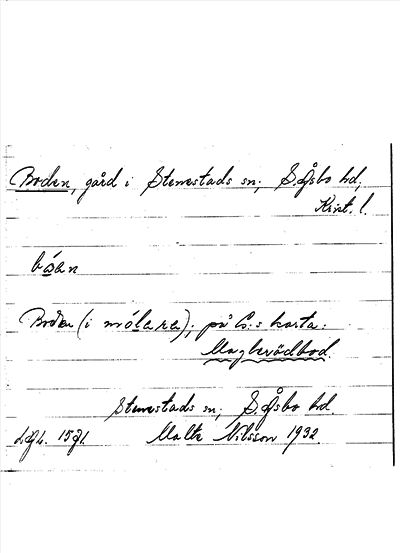 Boden, gård i Stenestads sn; S. Åsbo hd,
Krist. l.
Boden (i mólara); på G:s karta:
Maglerödbod.
Stenestads sn, S. Åsbo hd.
Malte Nilsson 1932